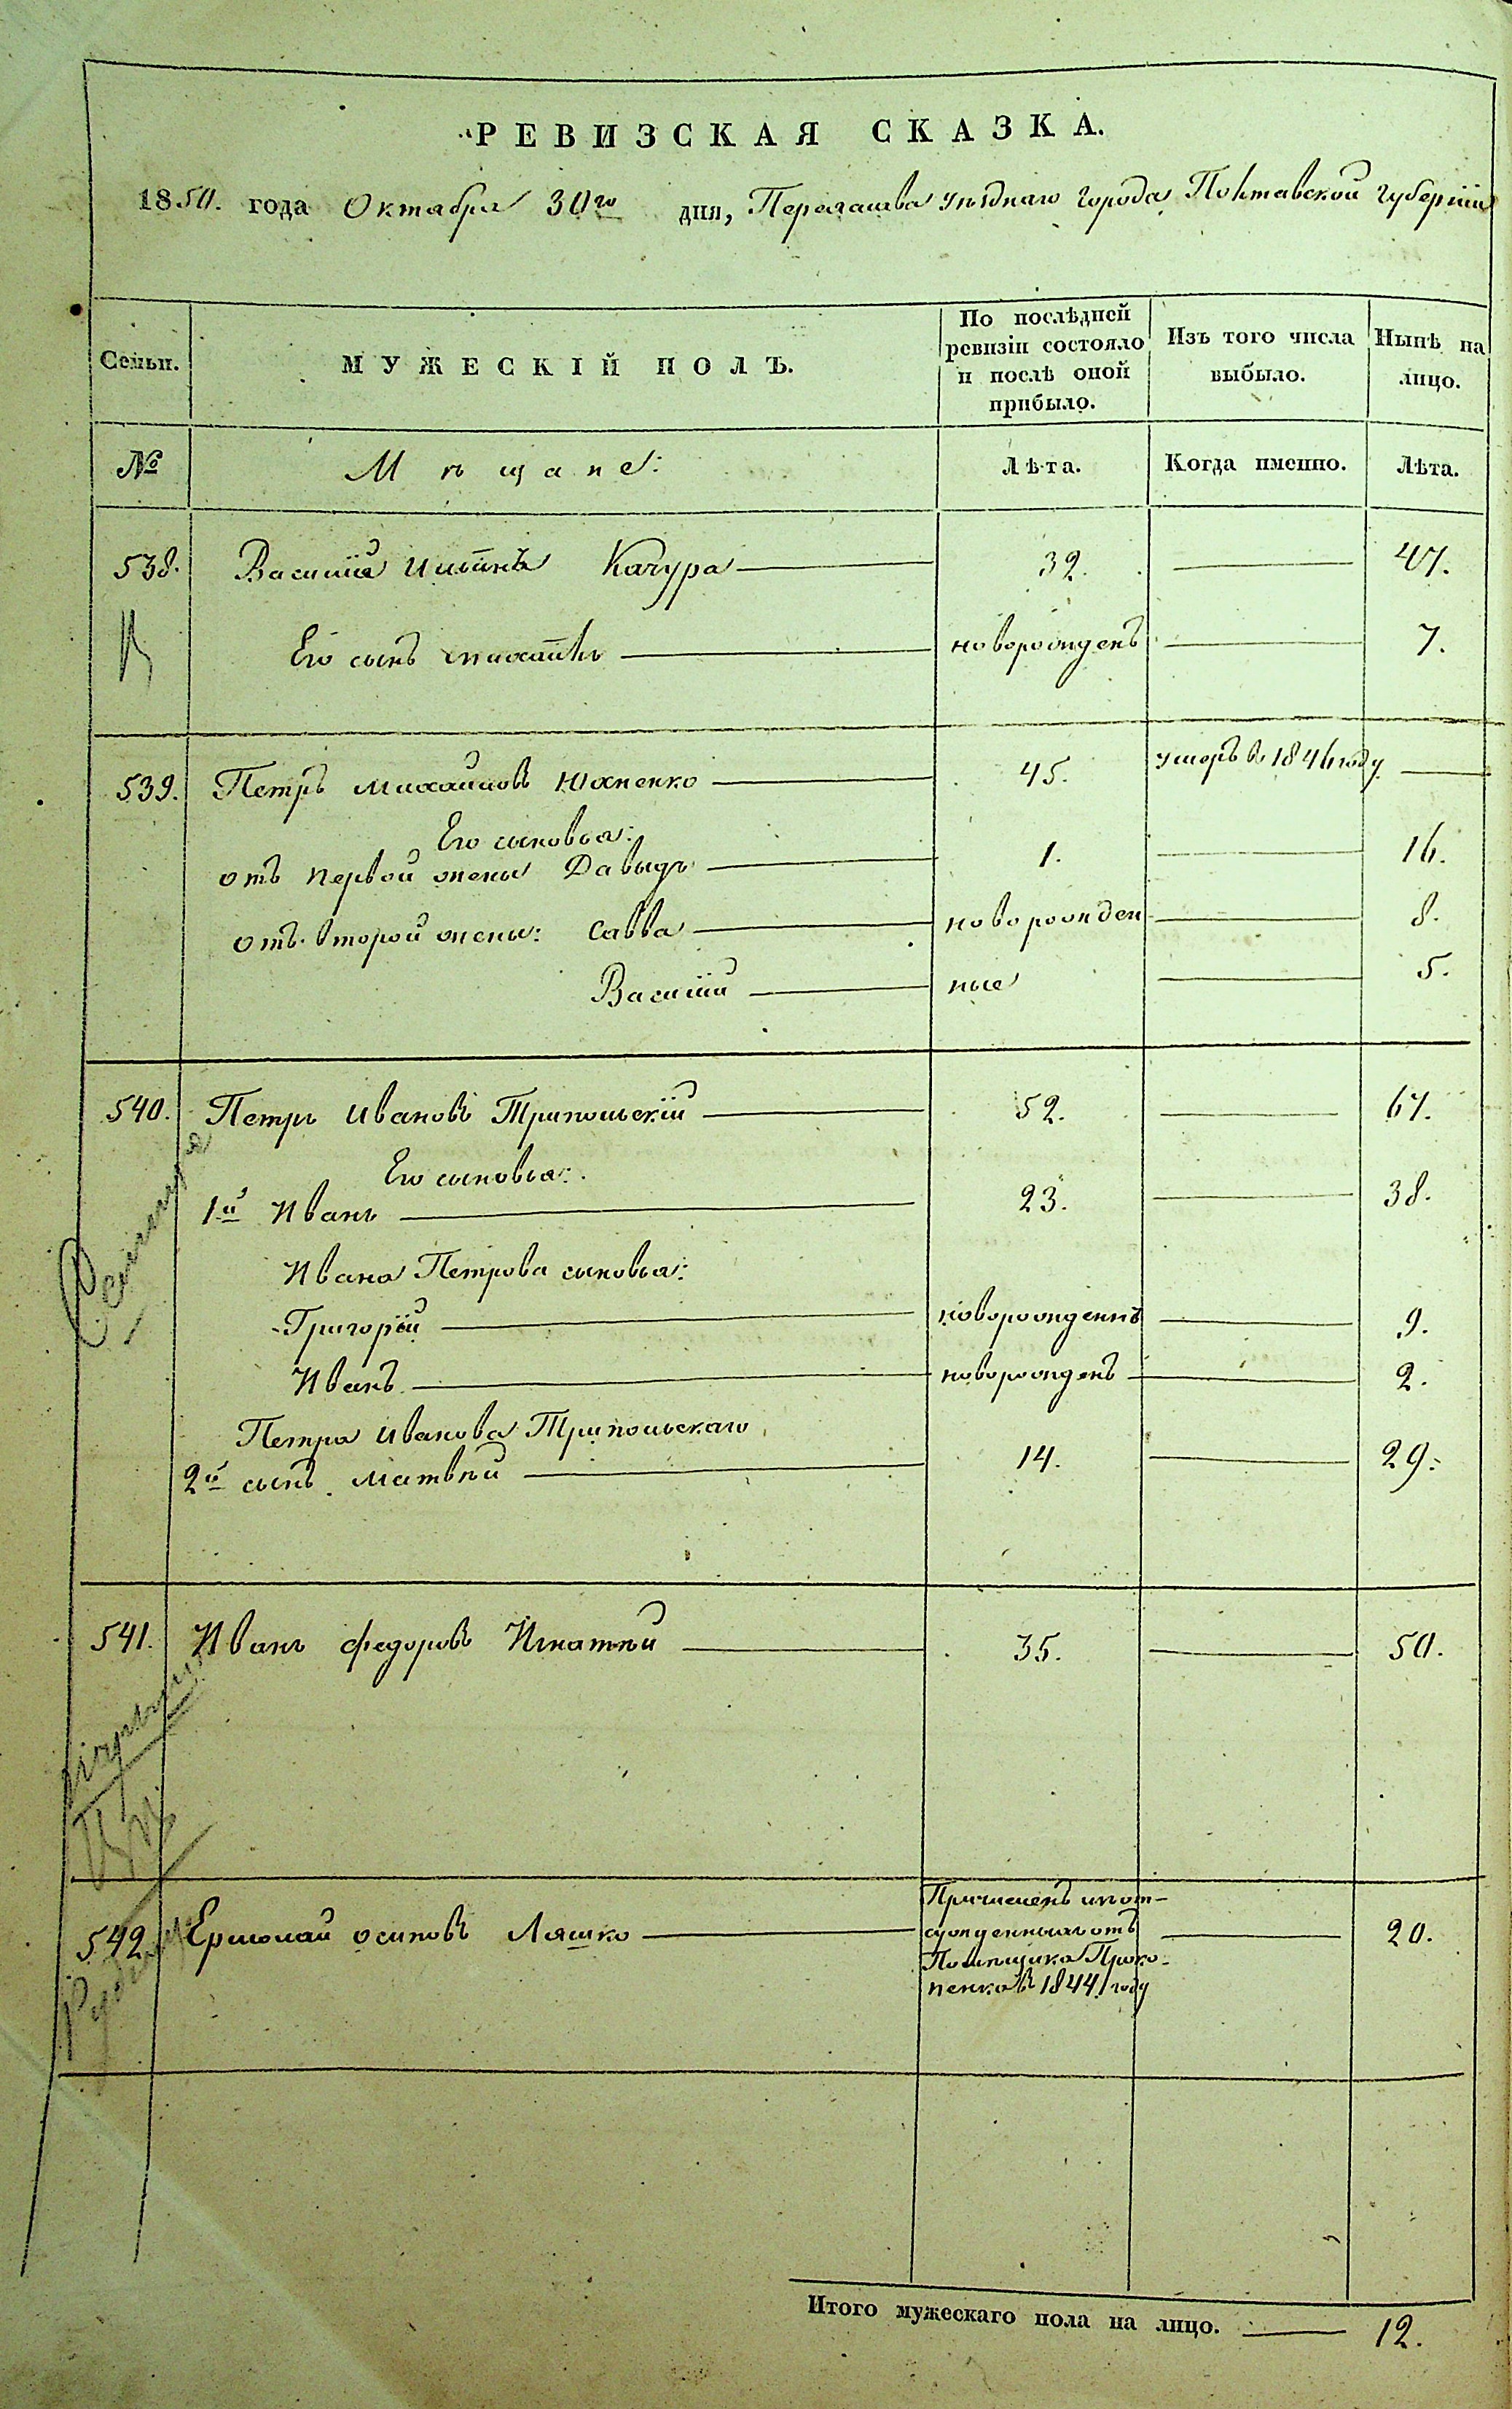 РЕВИЗСКАЯ СКАЗКА.
1850. года Октября 30го дня, Переяслава уѣзднаго города Полтавской губерніи
Семьи.
МУЖЕСКІЙ ПОЛЪ.
По послѣдней
ревизіи состояло
и послѣ оной
прибыло.
Изъ того числа
выбыло.
Нынѣ на
лицо.
№
Мѣщане:
Лѣта.
Когда именно.
Лѣта.
538. Василій Ильинъ Качура 32. 47.
Его сынъ новорожденъ 7.
539. Петръ Михайловъ Юхненко 45. умеръ въ 1846 году
Его сыновья:
отъ первой жены Давыдъ 1. 16.
отъ второй жены: Савва новорожден 8.
Василій ные 5.
540. Петръ Ивановъ Трипольскій 52. 67.
Его сыновья:
1й Иванъ 23. 38.
Ивана Петрова сыновья:
Григорій новорожденъ 9.
Иванъ новорожденъ 2.
Петра Иванова Трипольскаго
2й сынъ Матвѣй 14. 29.
541. Иванъ Федоровъ Игнатѣй 35. 50.
542. Ермолай Осиповъ Ляшко 20.
Причисленъ изъ от-
сужденныхъ отъ
Помѣщика Проко-
пенка въ 1844 году
Итого мужескаго пола на лицо. 12.